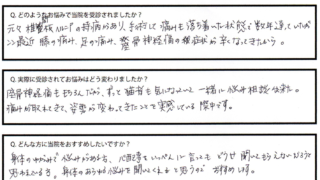 Q. どのようなお悩みで当院を受診されましたか?
元々 椎間板ヘルニアの持病があり、手術して痛みも落ち着いた状態で数年過していたが
ここ最近 膝の痛み、足の痛み、坐骨神経痛の症状が辛くなってきたから。
Q. 実際に受診されてお悩みはどう変わりましたか?
坐骨神経痛をもちろんだが、 も 気になって 一緒に悩み相談 出来た。
痛みが取れてきて、姿勢が変わってきたことを実感している際中です。
Q. どんな方に当院をおすすめしたいですか?
身体のゆがみで悩みがある方、 どうせ聞いてもらえないだろうと
思われている方。身体のあらゆる悩みを聞いてくれると思うので お勧めします。